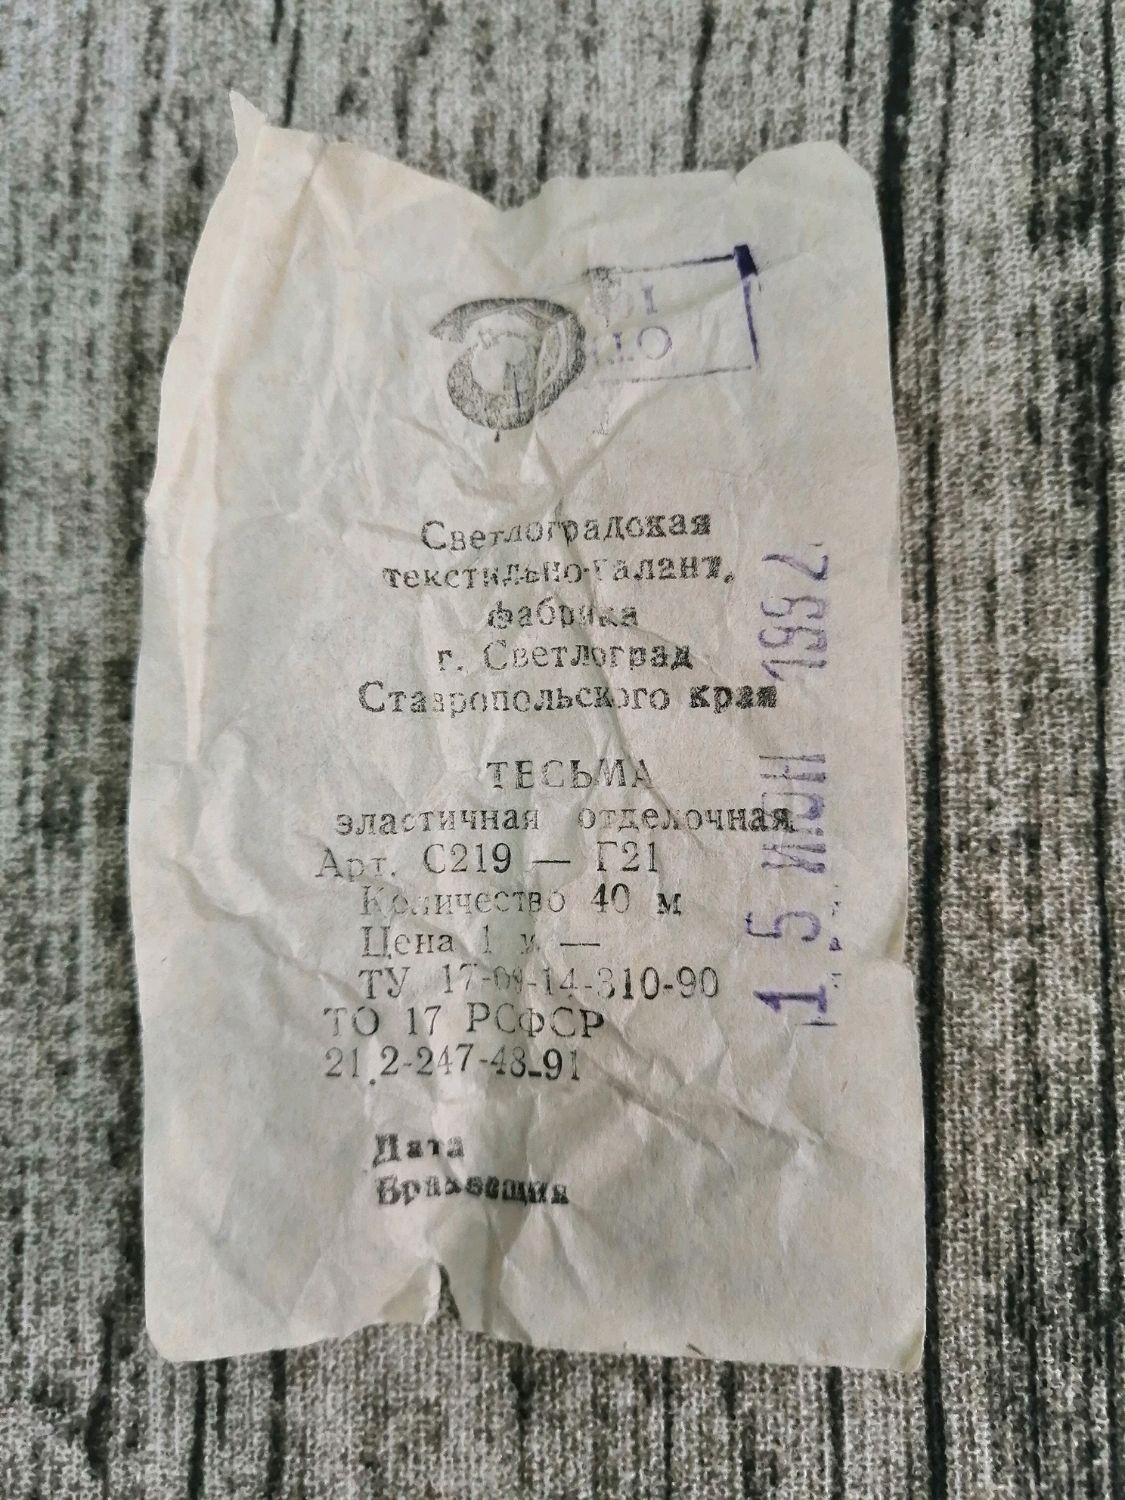 ОТК
Светлоградская
текстильно-галант.
фабрика
г. Светлоград
Ставропольского края
ТЕСЬМА
эластичная отделочная
Арт. С219 — Г21
Количество 40 м
Цена 1 м —
ТУ 17-09-14-310-90
ТО 17 РСФСР
21.2-247-48-91
Дата
Браковщик
15 ИЮН 1992